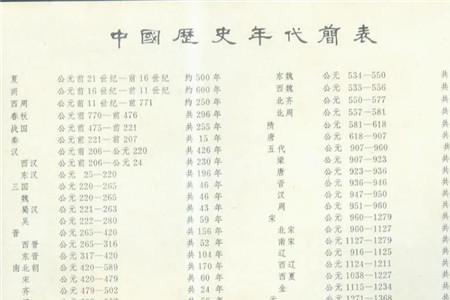 中國歷史年代簡表
夏 公元前21世纪—前16世纪 约500年
商 公元前16世纪—前11世纪 约600年
西周 公元前11世纪—前771 约250年
春秋 公元前770—前476 共296年
战国 公元前475—前221 共255年
秦 公元前221—前207 共15年
汉 公元前206—公元220 共426年
西汉 公元前206—公元24 共230年
东汉 公元 25—220 共196年
三国 公元220—265 共46年
魏 公元220—265 共46年
蜀汉 公元221—263 共43年
吴 公元222—280 共59年
晋 公元265—420 共156年
西晋 公元265—316 共52年
东晋 公元317—420 共104年
南北朝 公元420—589 共170年
宋 公元420—479 共60年
齐 公元479—502 共24年
东魏 公元 534—550 共
西魏 公元 535—556 共
北齐 公元 550—577 共
北周 公元 557—581 共
隋 公元 581—618 共
唐 公元 618—907 共
五代 公元 907—960 共
梁 公元 907—923 共
唐 公元 923—936 共
晋 公元 936—946 共
汉 公元 947—950 共
周 公元 951—960 共
宋 公元 960—1279 共
北宋 公元 960—1127 共
南宋 公元 1127—1279 共
辽 公元 916—1125 共
西辽 公元 1124—1211 共
西夏 公元 1038—1227 共
金 公元 1115—1234 共
元 公元 1271—1368 共